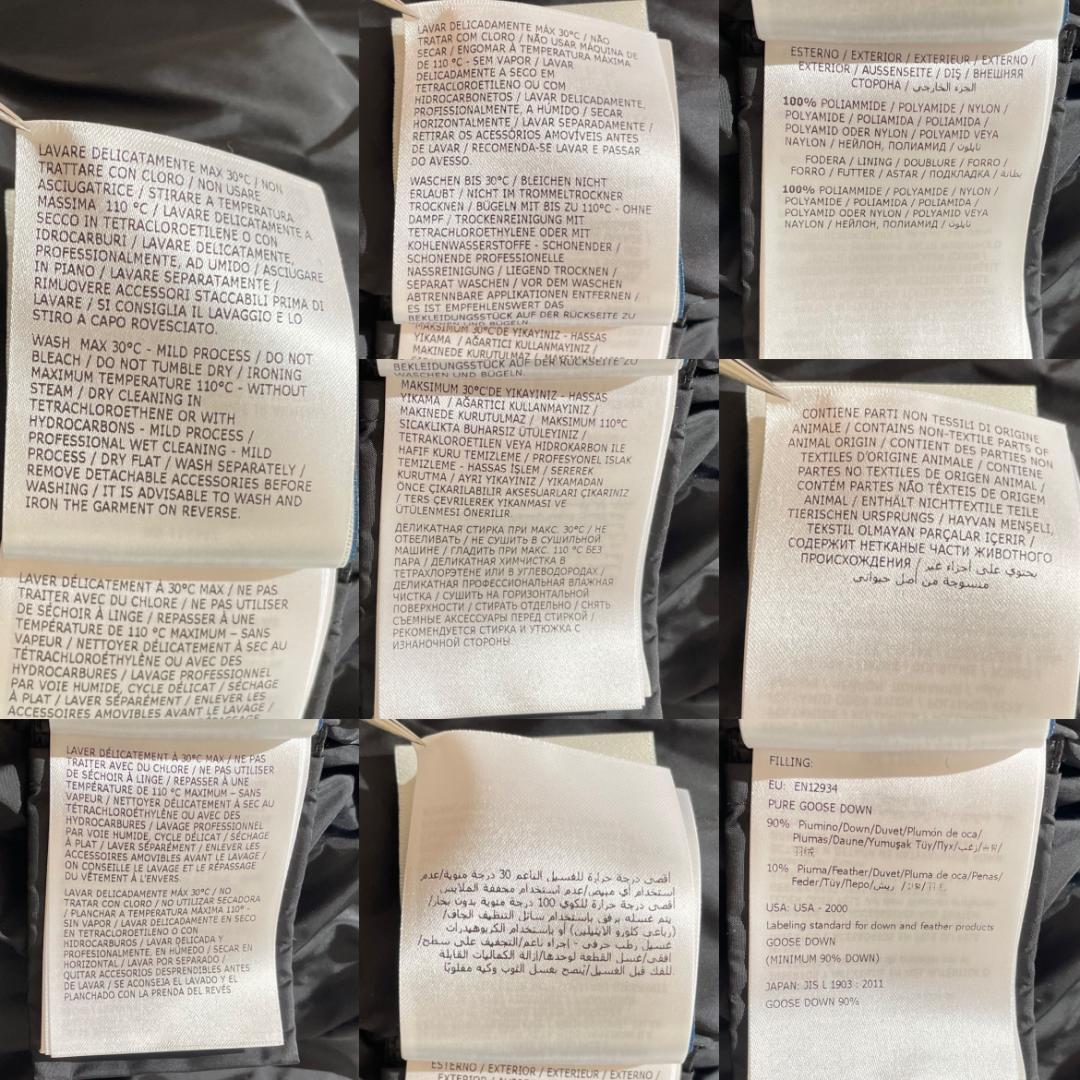 LAVARE DELICATAMENTE MAX 30°C / NON
TRATTARE CON CLORO / NON USARE
ASCIUGATRICE / STIRARE A TEMPERATURA
MASSIMA 110 °C / LAVARE DELICATAMENTE A
SECCO IN TETRACLOROETILENE O CON
IDROCARBURI / LAVARE DELICATAMENTE,
PROFESSIONALMENTE, AD UMIDO / ASCIUGARE
IN PIANO / LAVARE SEPARATAMENTE /
RIMUOVERE ACCESSORI STACCABILI PRIMA DI
LAVARE / SI CONSIGLIA IL LAVAGGIO E LO
STIRO A CAPO ROVESCIATO.
WASH MAX 30°C - MILD PROCESS / DO NOT
BLEACH / DO NOT TUMBLE DRY / IRONING
MAXIMUM TEMPERATURE 110°C - WITHOUT
STEAM / DRY CLEANING IN
TETRACHLOROETHENE OR WITH
HYDROCARBONS - MILD PROCESS /
PROFESSIONAL WET CLEANING - MILD
PROCESS / DRY FLAT / WASH SEPARATELY /
REMOVE DETACHABLE ACCESSORIES BEFORE
WASHING / IT IS ADVISABLE TO WASH AND
IRON THE GARMENT ON REVERSE.
LAVER DÉLICATEMENT À 30°C MAX / NE PAS
TRAITER AVEC DU CHLORE / NE PAS UTILISER
DE SÉCHOIR À LINGE / REPASSER À UNE
TEMPÉRATURE DE 110 °C MAXIMUM – SANS
VAPEUR / NETTOYER DÉLICATEMENT À SEC AU
TÉTRACHLOROÉTHYLÈNE OU AVEC DES
HYDROCARBURES / LAVAGE PROFESSIONNEL
PAR VOIE HUMIDE, CYCLE DÉLICAT / SÉCHAGE
À PLAT / LAVER SÉPARÉMENT / ENLEVER LES
ACCESSOIRES AMOVIBLES AVANT LE LAVAGE /
LAVAR DELICADAMENTE MÁX 30°C / NÃO
TRATAR COM CLORO / NÃO USAR MÁQUINA DE
SECAR / ENGOMAR À TEMPERATURA MÁXIMA
DE 110 °C - SEM VAPOR / LAVAR
DELICADAMENTE A SECO EM
TETRACLOROETILENO OU COM
HIDROCARBONETOS / LAVAR DELICADAMENTE,
PROFISSIONALMENTE, A HÚMIDO / SECAR
HORIZONTALMENTE / LAVAR SEPARADAMENTE /
RETIRAR OS ACESSÓRIOS AMOVÍVEIS ANTES
DE LAVAR / RECOMENDA-SE LAVAR E PASSAR
DO AVESSO.
WASCHEN BIS 30°C / BLEICHEN NICHT
ERLAUBT / NICHT IM TROMMELTROCKNER
TROCKNEN / BÜGELN MIT BIS ZU 110°C - OHNE
DAMPF / TROCKENREINIGUNG MIT
TETRACHLOROETHYLENE ODER MIT
KOHLENWASSERSTOFFE - SCHONENDER /
SCHONENDE PROFESSIONELLE
NASSREINIGUNG / LIEGEND TROCKNEN /
SEPARAT WASCHEN / VOR DEM WASCHEN
ABTRENNBARE APPLIKATIONEN ENTFERNEN /
ES IST EMPFEHLENSWERT DAS
BEKLEIDUNGSSTÜCK AUF DER RÜCKSEITE ZU
WASCHEN UND BÜGELN.
MAKSIMUM 30°C'DE YIKAYINIZ - HASSAS
YIKAMA / AĞARTICI KULLANMAYINIZ /
MAKİNEDE KURUTULMAZ / MAKSIMUM 110°C
ESTERNO / EXTERIOR / EXTERIEUR / EXTERNO /
EXTERIOR / AUSSENSEITE / DIŞ / ВНЕШНЯЯ
СТОРОНА / الجزء الخارجي
100% POLIAMMIDE / POLYAMIDE / NYLON /
POLYAMIDE / POLIAMIDA / POLIAMIDA /
POLYAMID ODER NYLON / POLYAMID VEYA
NAYLON / НЕЙЛОН, ПОЛИАМИД / نايلون
FODERA / LINING / DOUBLURE / FORRO /
FORRO / FUTTER / ASTAR / ПОДКЛАДКА / بطانة
100% POLIAMMIDE / POLYAMIDE / NYLON /
POLYAMIDE / POLIAMIDA / POLIAMIDA /
POLYAMID ODER NYLON / POLYAMID VEYA
NAYLON / НЕЙЛОН, ПОЛИАМИД / نايلون
BEKLEIDUNGSSTÜCK AUF DER RÜCKSEITE ZU
WASCHEN UND BÜGELN.
MAKSIMUM 30°C'DE YIKAYINIZ - HASSAS
YIKAMA / AĞARTICI KULLANMAYINIZ /
MAKİNEDE KURUTULMAZ / MAKSIMUM 110°C
SICAKLIKTA BUHARSIZ ÜTÜLEYİNİZ /
TETRAKLOROETİLEN VEYA HİDROKARBON İLE
HAFIF KURU TEMIZLEME / PROFESYONEL ISLAK
TEMIZLEME - HASSAS İŞLEM / SEREREK
KURUTMA / AYRI YIKAYINIZ / YIKAMADAN
ÖNCE ÇIKARILABILIR AKSESUARLARI ÇIKARINIZ
/ TERS CEVRILEREK YIKANMASI VE
ÜTÜLENMESI ÖNERILIR.
ДЕЛИКАТНАЯ СТИРКА ПРИ МАКС. 30°C / НЕ
ОТБЕЛИВАТЬ / НЕ СУШИТЬ В СУШИЛЬНОЙ
МАШИНЕ / ГЛАДИТЬ ПРИ МАКС. 110 °C БЕЗ
ПАРА / ДЕЛИКАТНАЯ ХИМЧИСТКА В
ТЕТРАХЛОРЭТЕНЕ ИЛИ В УГЛЕВОДОРОДАХ /
ДЕЛИКАТНАЯ ПРОФЕССИОНАЛЬНАЯ ВЛАЖНАЯ
ЧИСТКА / СУШИТЬ НА ГОРИЗОНТАЛЬНОЙ
ПОВЕРХНОСТИ / СТИРАТЬ ОТДЕЛЬНО / СНЯТЬ
СЪЕМНЫЕ АКСЕССУАРЫ ПЕРЕД СТИРКОЙ /
РЕКОМЕНДУЕТСЯ СТИРКА И УТЮЖКА С
ИЗНАНОЧНОЙ СТОРОНЫ.
CONTIENE PARTI NON TESSILI DI ORIGINE
ANIMALE / CONTAINS NON-TEXTILE PARTS OF
ANIMAL ORIGIN / CONTIENT DES PARTIES NON
TEXTILES D'ORIGINE ANIMALE / CONTIENE
PARTES NO TEXTILES DE ORIGEN ANIMAL /
CONTÉM PARTES NÃO TÊXTEIS DE ORIGEM
ANIMAL / ENTHÄLT NICHTTEXTILE TEILE
TIERISCHEN URSPRUNGS / HAYVAN MENŞELİ,
TEKSTIL OLMAYAN PARÇALAR IÇERIR /
СОДЕРЖИТ НЕТКАНЫЕ ЧАСТИ ЖИВОТНОГО
ПРОИСХОЖДЕНИЯ / يحتوي على أجزاء غير
منسوجة من أصل حيواني
LAVER DÉLICATEMENT À 30°C MAX / NE PAS
TRAITER AVEC DU CHLORE / NE PAS UTILISER
DE SÉCHOIR À LINGE / REPASSER À UNE
TEMPÉRATURE DE 110 °C MAXIMUM – SANS
VAPEUR / NETTOYER DÉLICATEMENT À SEC AU
TÉTRACHLOROÉTHYLÈNE OU AVEC DES
HYDROCARBURES / LAVAGE PROFESSIONNEL
PAR VOIE HUMIDE, CYCLE DÉLICAT / SÉCHAGE
À PLAT / LAVER SÉPARÉMENT / ENLEVER LES
ACCESSOIRES AMOVIBLES AVANT LE LAVAGE /
ON CONSEILLE LE LAVAGE ET LE REPASSAGE
DU VÊTEMENT À L'ENVERS.
LAVAR DELICADAMENTE MÁX 30°C / NO
TRATAR CON CLORO / NO UTILIZAR SECADORA
/ PLANCHAR A TEMPERATURA MÁXIMA 110° -
SIN VAPOR / LAVAR DELICADAMENTE EN SECO
EN TETRACLOROETILENO O CON
HIDROCARBUROS / LAVAR DELICADA Y
PROFESIONALMENTE, EN HÚMEDO / SECAR EN
HORIZONTAL / LAVAR POR SEPARADO /
QUITAR ACCESORIOS DESPRENDIBLES ANTES
DE LAVAR / SE ACONSEJA EL LAVADO Y EL
PLANCHADO CON LA PRENDA DEL REVÉS
أقصى درجة حرارة للغسيل الناعم 30 درجة مئوية/عدم
إستخدام أي مبيض/عدم استخدام مجففة الملابس
أقصى درجة حرارة للكوي 100 درجة مئوية بدون بخار/
يتم غسله برفق بإستخدام سائل التنظيف الجاف/
(رباعي كلورو الاثيلين) أو بإستخدام الكربوهيدرات
غسيل رطب حرفي - اجراء ناعم/التجفيف على سطح/
افقي/غسل القطعة لوحدها/إزالة الكماليات القابلة
للفك قبل الغسيل/يُنصح بغسل الثوب وكيه مقلوبًا
ESTERNO / EXTERIOR / EXTERIEUR / EXTERNO /
FILLING:
EU: EN12934
PURE GOOSE DOWN
90% Piumino/Down/Duvet/Plumón de oca/
Plumas/Daune/Yumuşak Tüy/Пух/زغب/
10% Piuma/Feather/Duvet/Pluma de oca/Penas/
Feder/Tüy/Перо/ريش/
USA: USA - 2000
Labeling standard for down and feather products
GOOSE DOWN
(MINIMUM 90% DOWN)
JAPAN: JIS L 1903 : 2011
GOOSE DOWN 90%